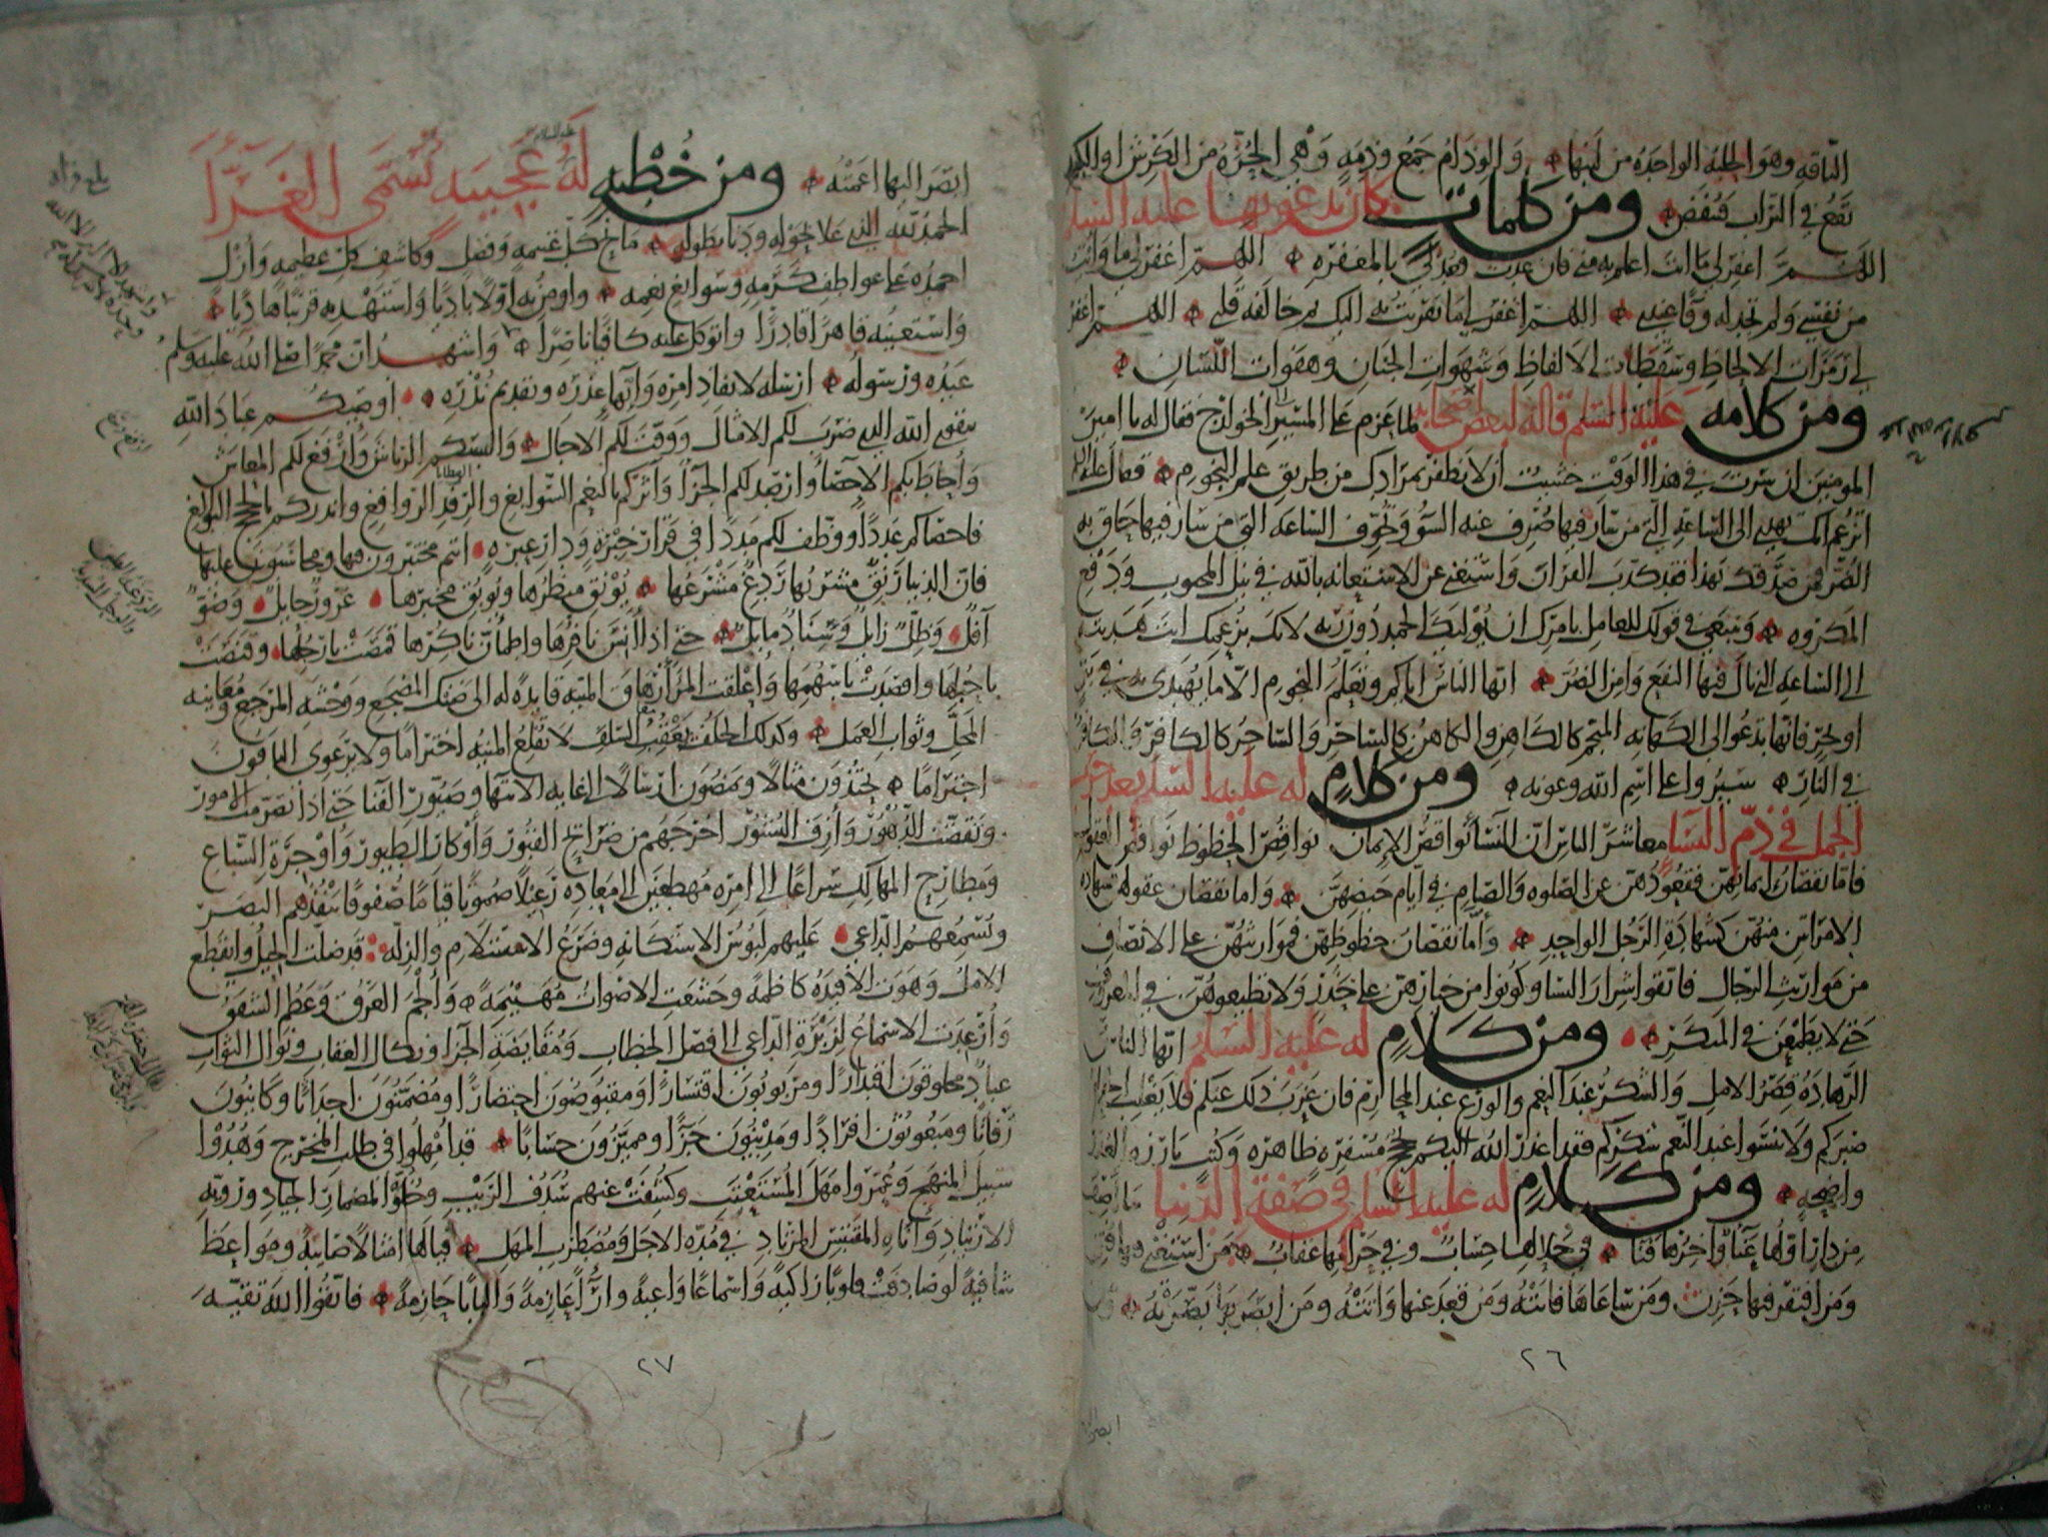 الناقه وهو الحلبه الواحده من لبنها والوذام جمع وذمه وهي الحزه من الكرش او الكبد
تقع في التراب فتنفض ومن كلمات كان يدعو بها عليه السلم
اللهم اغفر لي ما انت اعلم به مني فان عدت فعد لي بالمغفره اللهم اغفر لي ما وايت
من نفسي ولم تجد له وفا عندي اللهم اغفر لي ما تقربت به اليك ثم خالفه قلبي اللهم اغفر
لي رمزات الالحاظ وسقطات الالفاظ وشهوات الجنان وهفوات اللسان
ومن كلامه عليه السلم قاله لبعض اصحابه لما عزم على المسير الى الخوارج فقال له يا امير
المومنين ان سرت في هذا الوقت خشيت ان لا تظفر بمرادك من طريق علم النجوم فقال عليه السلم
اتزعم انك تهدي الى الساعه التي من سار فيها صرف عنه السو وتخوف الساعه التي من سار فيها حاق به
الضر فمن صدقك بهذا فقد كذب القران واستغنى عن الاستعانه بالله في نيل المحبوب ودفع
المكروه وتبتغي في قولك للعامل بامرك ان يوليك الحمد دون ربه لانك بزعمك انت هديته
الى الساعه التي نال فيها النفع وامن الضر ايها الناس اياكم وتعلم النجوم الا ما يهتدى به في بر
او بحر فانها تدعو الى الكهانه المنجم كالكاهن والكاهن كالساحر والساحر كالكافر والكافر
في النار سيروا على اسم الله وعونه ومن كلام له عليه السلم بعد حرب
الجمل في ذم النسا معاشر الناس ان النسا نواقص الايمان نواقص الحظوظ نواقص العقول
فاما نقصان ايمانهن فقعودهن عن الصلوه والصيام في ايام حيضهن واما نقصان عقولهن فشهاده
الامراتين منهن كشهادة الرجل الواحد واما نقصان حظوظهن فمواريثهن على الانصاف
من مواريث الرجال فاتقوا شرار النسا وكونوا من خيارهن على حذر ولا تطيعوهن في المعروف
حتى لا يطمعن في المنكر ومن كلام له عليه السلم ايها الناس
الزهادة قصر الامل والشكر عند النعم والورع عند المحارم فان عزب ذلك عنكم فلا يغلب الحرام
صبركم ولا تنسوا عند النعم شكركم فقد اعذر الله اليكم بحجج مسفره ظاهره وكتب بارزه العذر
واضحه ومن كلام له عليه السلم في صفة الدنيا ما اصف
من دار اولها عنا واخرها فنا في حلالها حساب وفي حرامها عقاب من استغنى فيها فتن
ومن افتقر فيها حزن ومن ساعاها فاتته ومن قعد عنها واتته ومن ابصر بها بصرته ومن
٢٦
ابصر اليها اعمته ومن خطبه له عليه السلام عجيبه تسمى الغرا
الحمد لله الذي علا بحوله ودنا بطوله مانح كل غنيمه وفضل وكاشف كل عظيمه وازل
احمده على عواطف كرمه وسوابغ نعمه واومن به اولا باديا واستهديه قريبا هاديا
واستعينه قاهرا قادرا واتوكل عليه كافيا ناصرا واشهد ان محمدا صلى الله عليه وسلم
عبده ورسوله ارسله لانفاذ امره وانها عذره وتقديم نذره اوصيكم عباد الله
بتقوى الله الذي ضرب لكم الامثال ووقت لكم الاجال والبسكم الرياش وارفغ لكم المعاش
واحاط بكم الاحصا وارصد لكم الجزا واثركم بالنعم السوابغ والرفد الروافغ وانذركم بالحجج البوالغ
فاحصاكم عددا ووظف لكم مددا في قرار خبرة ودار عبره انتم مختبرون فيها ومحاسبون عليها
فان الدنيا رنق مشربها ردغ مشرعها يونق منظرها ويوبق مخبرها غرور حايل وضو
آفل وظل زايل وسناد مايل حتى اذا انس نافرها واطمان ناكرها قمصت بارجلها وقنصت
باحبلها واقصدت باسهمها واعلقت المرء اوهاق المنيه قايدة له الى ضنك المضجع ووحشه المرجع ومعاينه
المحل وثواب العمل وكذلك الخلف يعقب السلف لا تقلع المنيه اختراما ولا يرعوي الباقون
اجتراما يحتذون مثالا ويمضون ارسالا الى غايه الانتها وصيور الفنا حتى اذا تصرمت الامور
وتقضت الدهور وأزف النشور اخرجهم من ضرائح القبور وأوكار الطيور وأوجرة السباع
ومطارح المهالك سراعا الى امره مهطعين الى معاده رعيلا صموتا قياما صفوفا ينفذهم البصر
ويسمعهم الداعي عليهم لبوس الاستكانه وضرع الاستسلام والذله قد ضلت الحيل وانقطع
الامل وهوت الافيده كاظمة وخشعت الاصوات مهينمة والجم العرق وعظم الشفق
وارعدت الاسماع لزبرة الداعي الى فصل الخطاب ومقايضة الجزا ونكال العقاب ونوال الثواب
عباد مخلوقون اقتدارا ومربوبون اقتسارا ومقبوضون احتضارا ومضمنون اجداثا وكاينون
رفاتا ومبعوثون افرادا ومدينون جزا ومميزون حسابا قد امهلوا في طلب المخرج وهدوا
سبيل المنهج وعمروا مهل المستعتب وكشفت عنهم سدف الريب وخلوا لمضمار الجياد ورويه
الارتياد واناه المقتبس المرتاد في مده الاجل ومضطرب المهل فيالها امثالا صائبة ومواعظ
شافية لو صادفت قلوبا زاكيه واسماعا واعية واراء عازمة والبابا حازمة فاتقوا الله تقيه
٢٧